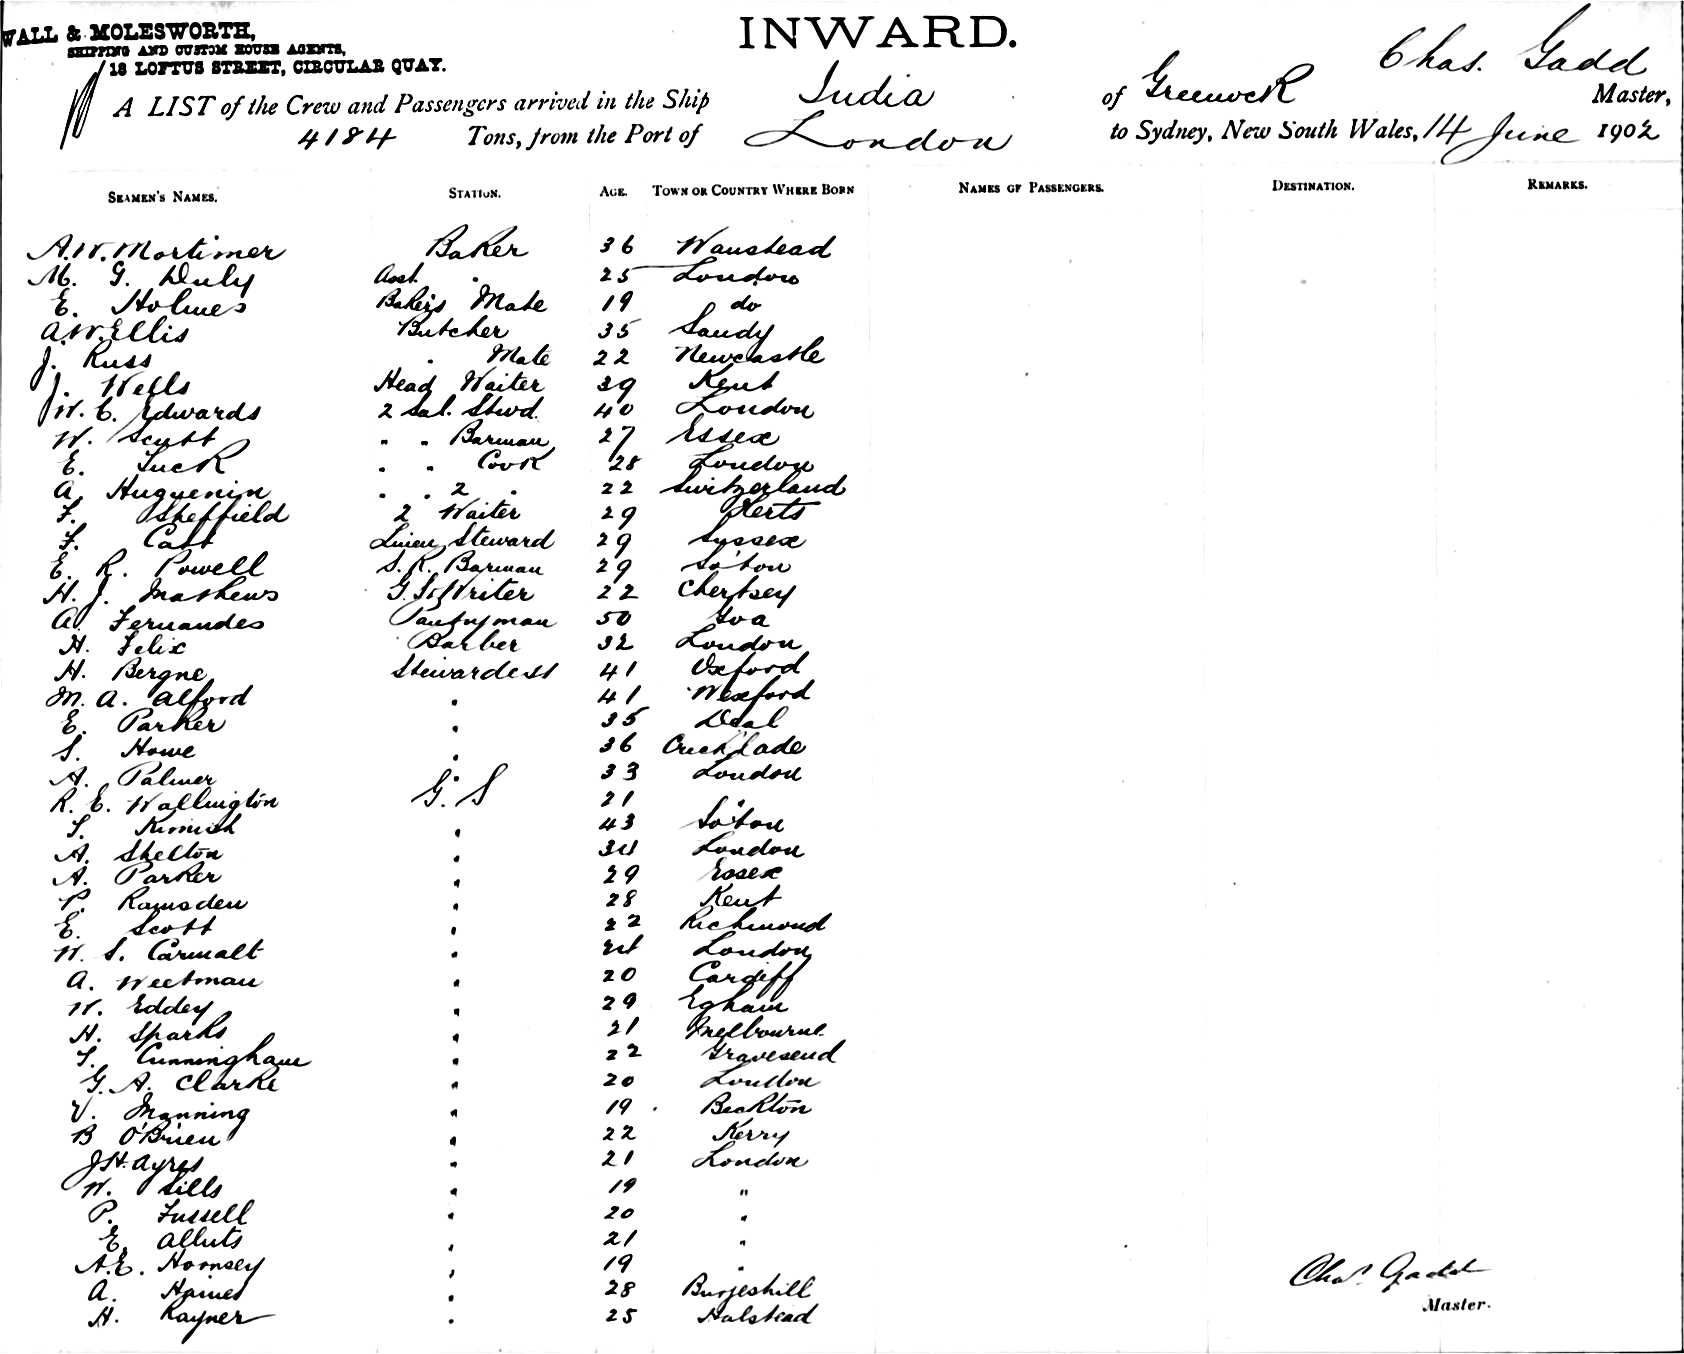 WALL & MOLESWORTH,
SHIPPING AND CUSTOM HOUSE AGENTS,
18 LOFTUS STREET, CIRCULAR QUAY.
INWARD.
A LIST of the Crew and Passengers arrived in the Ship India of Greenock Chas. Gadd Master,
4184 Tons, from the Port of London to Sydney, New South Wales, 14 June 1902
SEAMEN'S NAMES. STATION. AGE. TOWN OR COUNTRY WHERE BORN NAMES OF PASSENGERS. DESTINATION. REMARKS.
A.W. Mortimer Baker 36 Wanstead
M. G. Duly Asst. " 25 London
E. Holmes Bakers Mate 19 do
A.W. Ellis Butcher 35 Sandy
J. Russ " Mate 22 Newcastle
J. Wells Head Waiter 39 Kent
W. C. Edwards 2 Sal. Stwd. 40 London
W. Scutt " " Barman 27 Essex
E. Tuck " " Cook 28 London
A. Huguenin " " 2 " 22 Switzerland
F. Sheffield 2 Waiter 29 Herts
F. Catt Linen Steward 29 Sussex
E. R. Powell S. R. Barman 29 So'ton
H. J. Mathews G. S. Writer 22 Chertsey
A. Fernandes Pantryman 50 Goa
H. Felix Barber 32 London
H. Bergne Stewardess 41 Oxford
M. A. Alford " 41 Wexford
E. Parker " 35 Deal
S. Howe " 36 Cricklade
A. Palmer " 33 London
R. E. Wallington G. S 21 "
T. Kimish " 43 So'ton
A. Shelton " 34 London
A. Parker " 29 Essex
P. Ramsden " 28 Kent
E. Scott " 22 Richmond
W. S. Carmalt " 24 London
A. Weetman " 20 Cardiff
W. Eddey " 29 Egham
H. Sparks " 21 Melbourne
T. Cunningham " 22 Gravesend
G. A. Clarke " 20 London
V. Manning " 19 Beckton
B O'Brien " 22 Kerry
J H. Ayres " 21 London
W. Sills " 19 "
P. Fussell " 20 "
E. Alluts " 21 "
A.E. Hornsey " 19 "
A. Haines " 28 Burgeshill
H. Rayner " 25 Halstead
Chas. Gadd
Master.